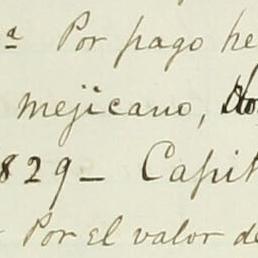 ª Por pago he
mejicano,
829 – Capit
Por el valor de